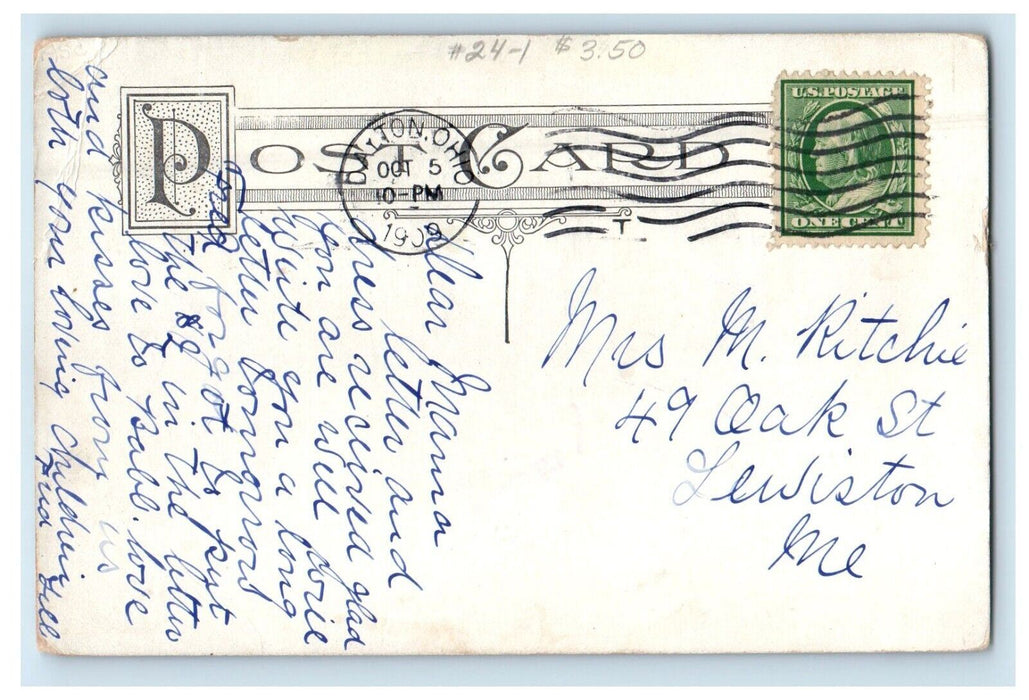 #24-1 $3.50
POST CARD
DALTON, OHIO
OCT 5
10-PM
1909
U.S. POSTAGE
ONE CENT
T
Mrs M. Ritchie
49 Oak St
Lewiston
Me
Dear Mamma
letter and
dress received glad
you are well
write you a long
letter tomorrow
forgot to put
the in the letter
love to Bubb. love
and kisses from us
both your loving children